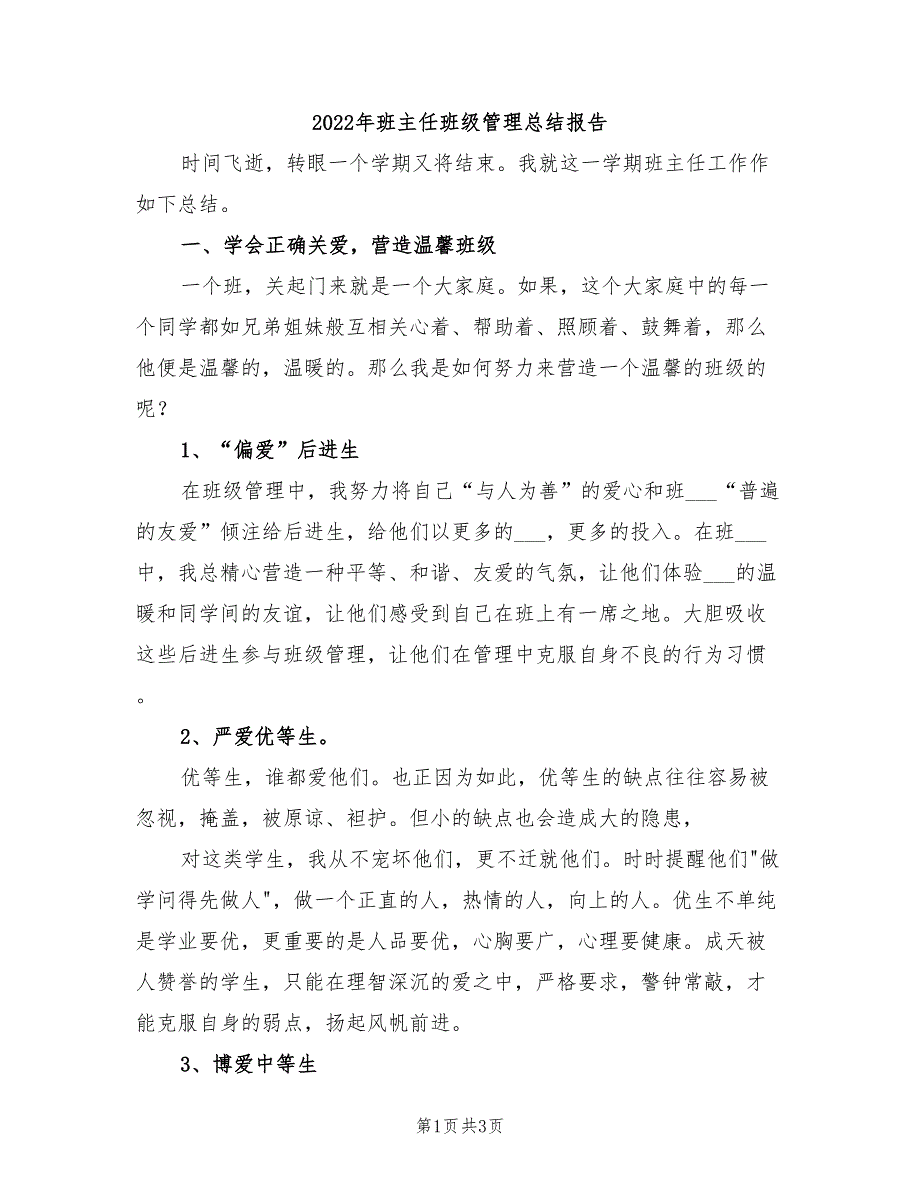 2022年班主任班级管理总结报告
时间飞逝，转眼一个学期又将结束。我就这一学期班主任工作作
如下总结。
一、学会正确关爱，营造温馨班级
一个班，关起门来就是一个大家庭。如果，这个大家庭中的每一
个同学都如兄弟姐妹般互相关心着、帮助着、照顾着、鼓舞着，那么
他便是温馨的，温暖的。那么我是如何努力来营造一个温馨的班级的
呢？
1、“偏爱”后进生
在班级管理中，我努力将自己“与人为善”的爱心和班___“普遍
的友爱”倾注给后进生，给他们以更多的___，更多的投入。在班___
中，我总精心营造一种平等、和谐、友爱的气氛，让他们体验___的温
暖和同学间的友谊，让他们感受到自己在班上有一席之地。大胆吸收
这些后进生参与班级管理，让他们在管理中克服自身不良的行为习惯
。
2、严爱优等生。
优等生，谁都爱他们。也正因为如此，优等生的缺点往往容易被
忽视，掩盖，被原谅、袒护。但小的缺点也会造成大的隐患，
对这类学生，我从不宠坏他们，更不迁就他们。时时提醒他们"做
学问得先做人"，做一个正直的人，热情的人，向上的人。优生不单纯
是学业要优，更重要的是人品要优，心胸要广，心理要健康。成天被
人赞誉的学生，只能在理智深沉的爱之中，严格要求，警钟常敲，才
能克服自身的弱点，扬起风帆前进。
3、博爱中等生
第1页共3页